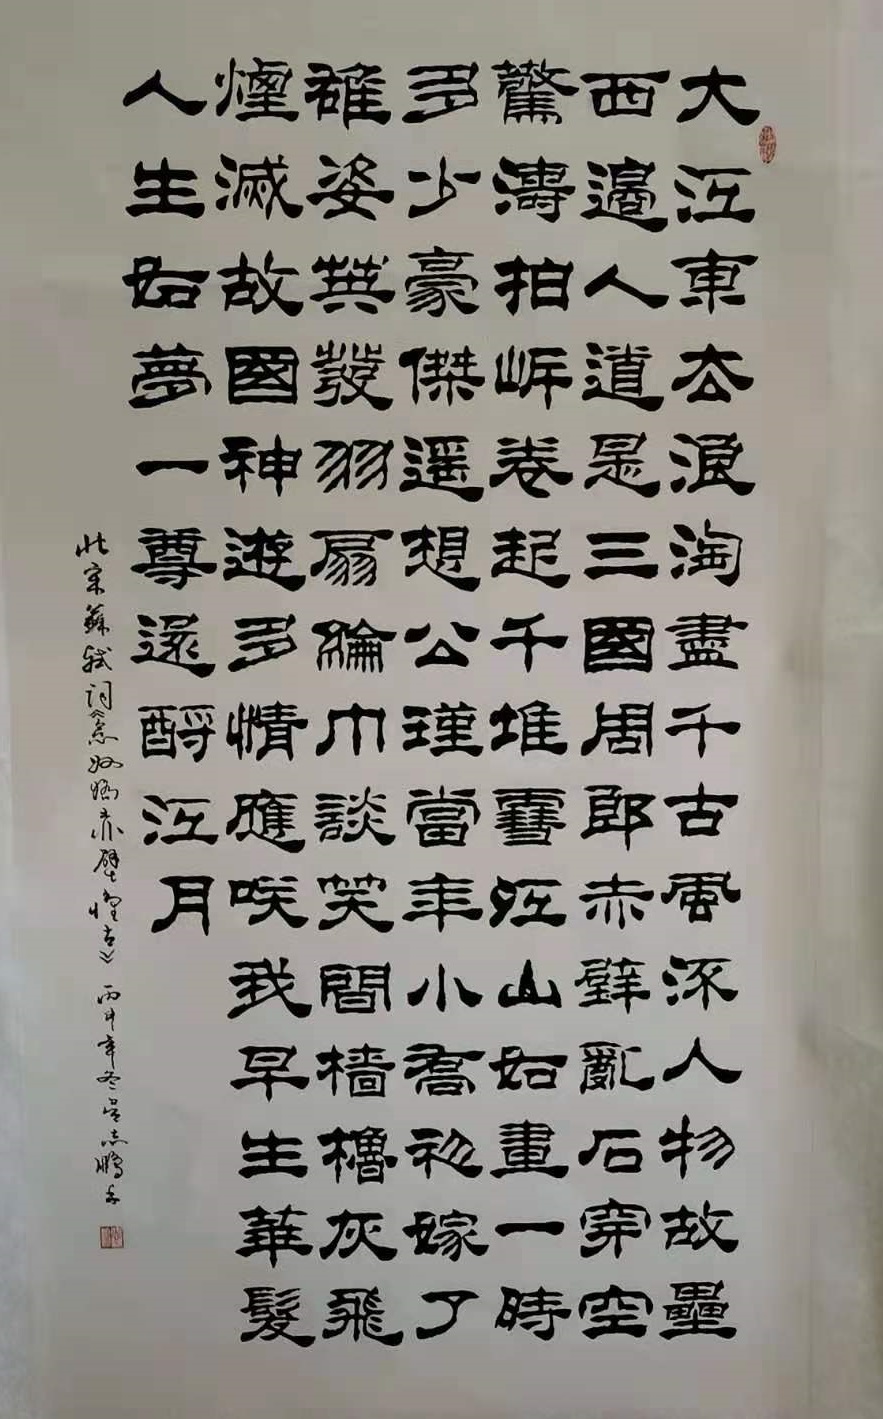 大江東去浪淘盡千古風流人物故壘
西邊人道是三國周郎赤壁亂石穿空
驚濤拍岸卷起千堆雪江山如畫一時
多少豪傑遥想公瑾當年小喬初嫁了
雄姿英發羽扇綸巾談笑間檣櫓灰飛
煙滅故國神遊多情應咲我早生華髮
人生如夢一尊還酹江月
北宋蘇軾詞《念奴嬌赤壁懷古》 丙申年冬吴志鵬書